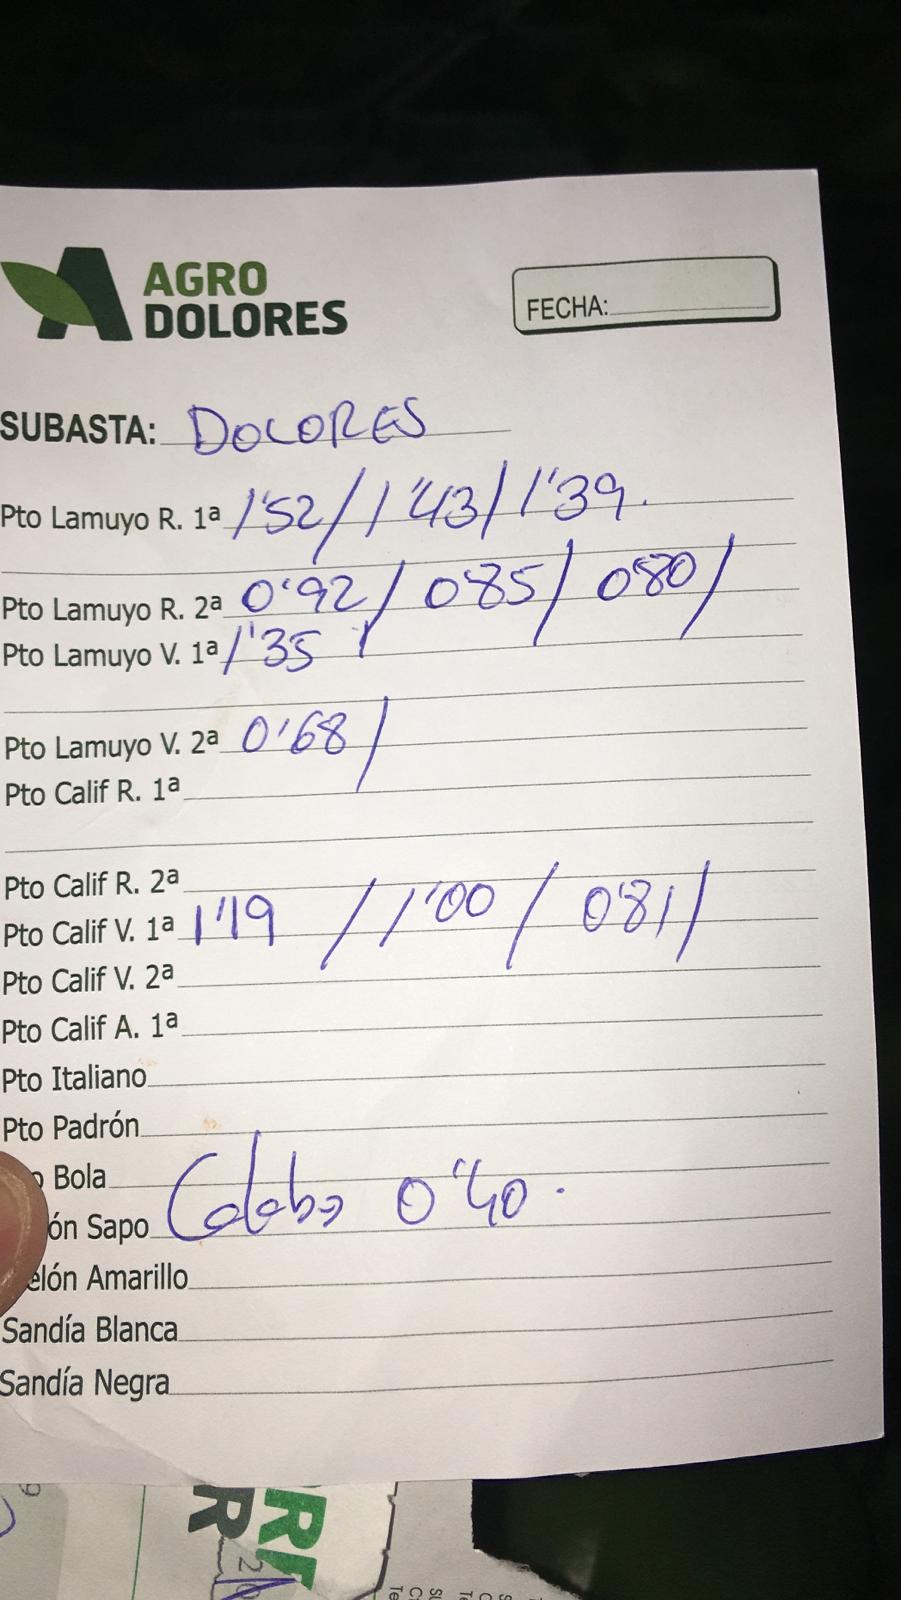 AGRO
DOLORES
FECHA:
SUBASTA: DOLORES
Pto Lamuyo R. 1ª 1'52/1'43/1'39.
Pto Lamuyo R. 2ª 0'92/0'85/0'80/
Pto Lamuyo V. 1ª 1'35
Pto Lamuyo V. 2ª 0'68/
Pto Calif R. 1ª
Pto Calif R. 2ª
Pto Calif V. 1ª 1'19/1'00/0'81/
Pto Calif V. 2ª
Pto Calif A. 1ª
Pto Italiano
Pto Padrón
Bola
ón Sapo 0'40.
elón Amarillo
Sandía Blanca
Sandía Negra